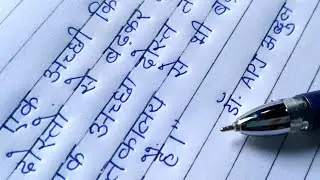 एक अच्छी कि
दोस्तो से बढ़कर
एक अच्छा दोस्त
से भी
है।"
डॉ. APJ अबुल